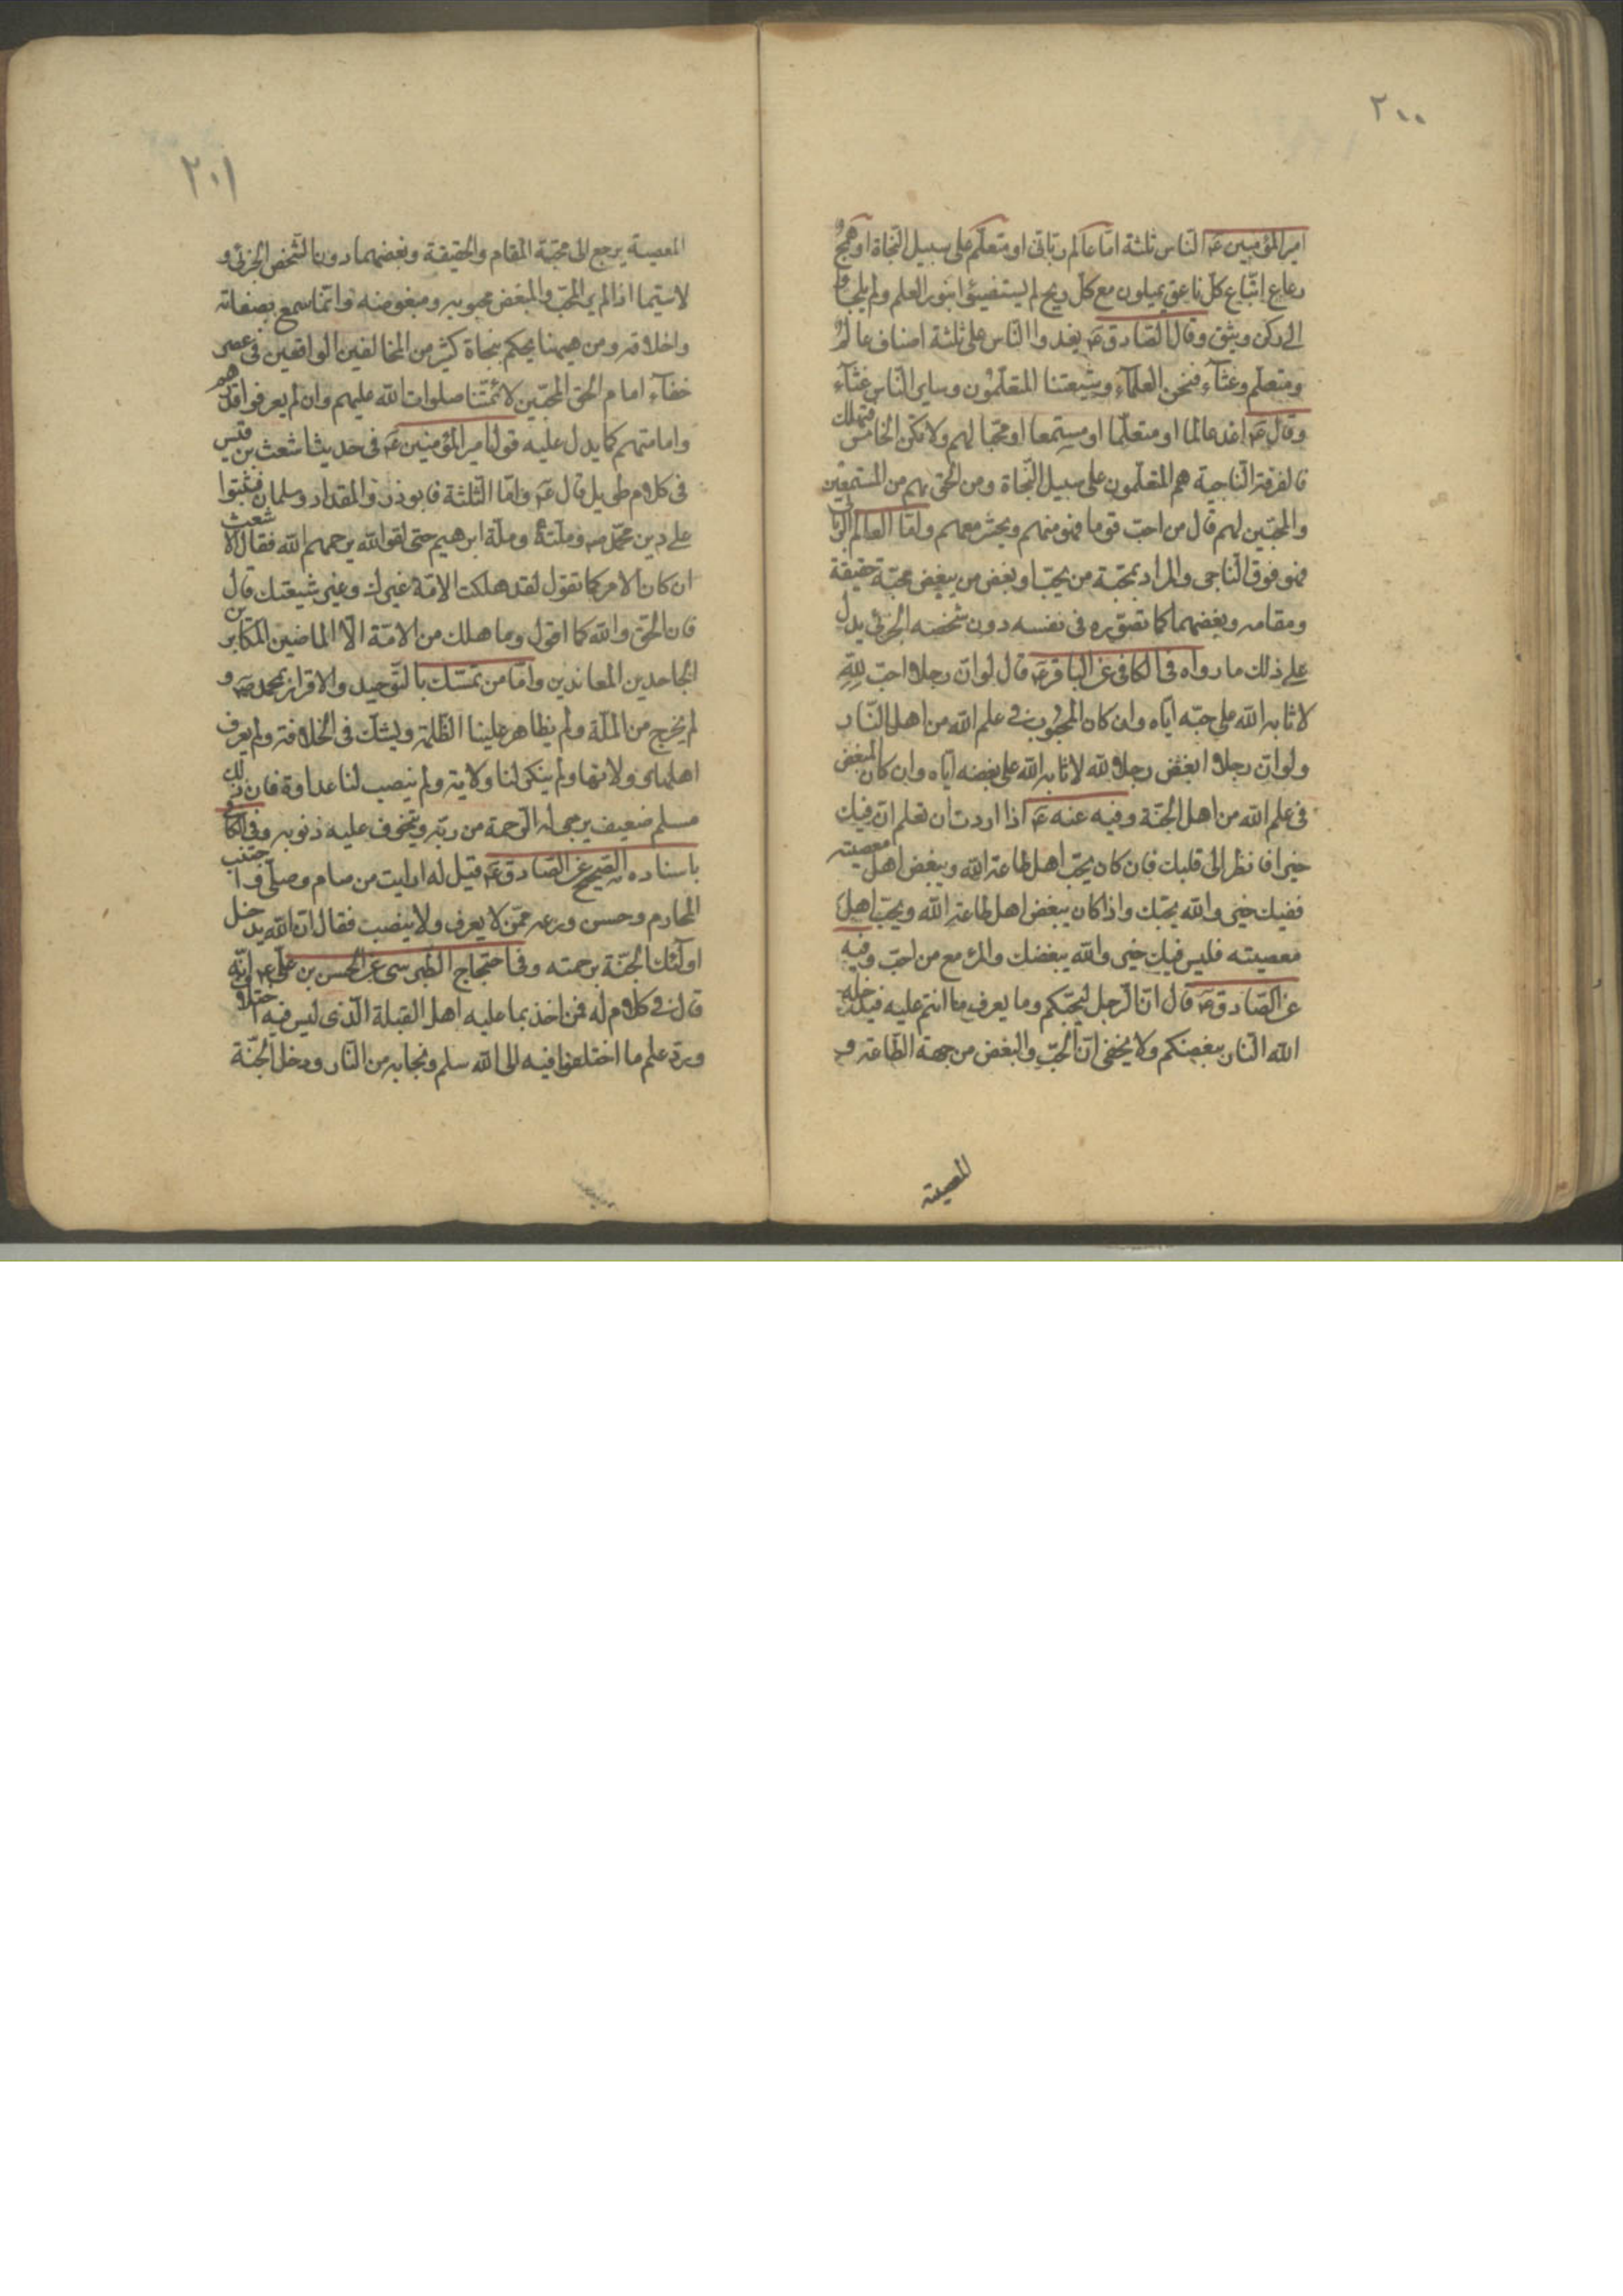 ٢٠٠
امير المؤمنين عَ الناس ثلثة امّا عالم ربّانى او متعلّم على سبيل النجاة او همج
رعاع اتّباع كلّ ناعق يميلون مع كلّ ريح لم يستضيئوا بنور العلم ولم يلجاوا
الى ركن وثيق وقال الصّادق عَ يغدوا الناس على ثلثة اصناف عالم
ومتعلّم وغثآء فنحن العلمآء وشيعتنا المتعلّمون وساير النّاس غثآء
وقال عَ اغد عالما او متعلّما او مستمعا او محبّا لهم ولا تكن الخامس فتهلك
فالفرقة الناجية هم المتعلّمون على سبيل النّجاة ومن الحق بهم من المستمعين
والمحبّين لهم قال من احبّ قوما فهو منهم ويحشر معهم وامّا العالم الربّانى
فهو فوق الناجى والمراد بمحبّة من يحبّ وبغض من يبغض محبّة حقيقة
ومقامه وبغضهما كما تصوّره فى نفسه دون شخصه الجزئى يدلّ
على ذلك ما رواه فى الكافى عن الباقر عَ قال لو انّ رجلا احبّ للّٰهِ
لاثابه الله على حبّه ايّاه وان كان المحبوب فى علم الله من اهل النّار
ولو انّ رجلا ابغض رجلا لله لاثابه الله على بغضه ايّاه وان كان المبغض
فى علم الله من اهل الجنّة وفيه عنه عَ اذا اردت ان تعلم انّ فيك
خيرا فانظر الى قلبك فان كان يحبّ اهل طاعة الله ويبغض اهل معصيته
ففيك خير والله يحبّك واذا كان يبغض اهل طاعة الله ويحبّ اهل
معصيته فليس فيك خير والله يبغضك والمرء مع من احبّ وفيه
عن الصّادق عَ قال انّ الرّجل ليحبّكم وما يعرف ما انتم عليه فيدخله
الله النار ببغضكم ولا يخفى انّ الحبّ والبغض من جهة الطّاعة و
المعصية
٢٠١
المعصية يرجع الى محبّة المقام والحقيقة وبغضهما دون الشّخص الجزئى و
لا سيّما اذا لم ير المحبّ والمبغض محبوبه ومبغوضه وانّما سمع بصفاته
واخلاقه ومن هيهنا يحكم بنجاة كثير من المخالفين الواقعين فى عصر
خفآء امام الحق المحبّين لائمّتنا صلوات الله عليهم وان لم يعرفوا قدرهم
وامامتهم كما يدل عليه قول امير المؤمنين عَ فى حديث اشعث بن قيس
فى كلام طويل قال عَ وامّا الثلثة فابوذر والمقداد وسلمان فثبتوا
على دين محمّد ص وملّته وملّة ابرهيم حتى لقوا الله يرحمهم الله فقال الاشعث
ان كان الامر كما تقول لقد هلكت الامّة غيرك وغير شيعتك قال
فان الحقّ والله كما اقول وما هلك من الامّة الّا الماضين المكابرين
الجاحدين المعاندين وامّا من تمسّك بالتّوحيد والاقرار بمحمد ص و
لم يخرج من الملّة ولم يظاهر علينا الظّلمة ويشكّ فى الخلافة ولم يعرف
اهلها و ولاتها ولم ينكر لنا ولاية ولم ينصب لنا عداوة فان ذلك
مسلم ضعيف يرجى له الرّحمة من ربّه ويتخوف عليه ذنوبه وفى الكافى
باسناده الصّحيح عن الصّادق عَ قيل له ارايت من صام وصلّى واجتنب
المحارم وحسن ورعه ممّن لا يعرف ولا ينصب فقال انّ الله يدخل
اولٓئك الجنّة برحمته وفى احتجاج الطّبرسى عن الحسن بن علىّ عَ انّه
قال فى كلام له فمن اخذ بما عليه اهل القبلة الّذى ليس فيه اختلاف
وردّ علم ما اختلفوا فيه الى الله سلم ونجا به من النّار ودخل الجنّة